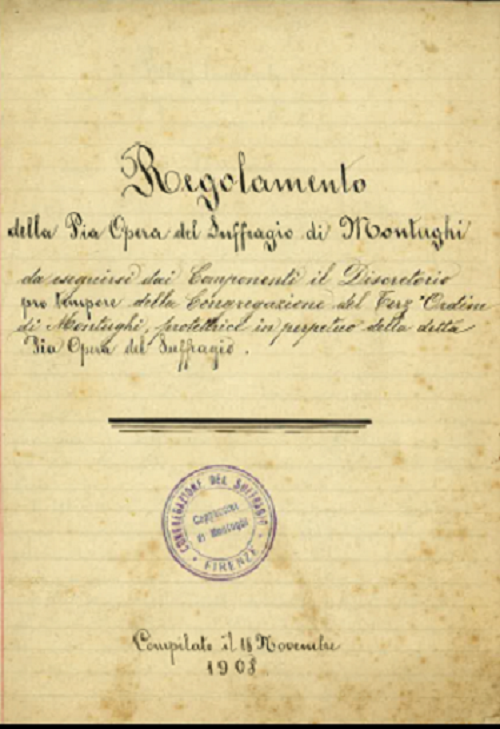 Regolamento
della Pia Opera del Suffragio di Montughi
da eseguirsi dai Componenti il Discretorio
pro tempore della Congregazione del Terz'Ordine
di Montughi, protettrice in perpetuo della detta
Pia Opera del Suffragio.
CONGREGAZIONE DEL SUFFRAGIO
Cappuccini
di Montughi
FIRENZE
Compilato il 18 Novembre
1908